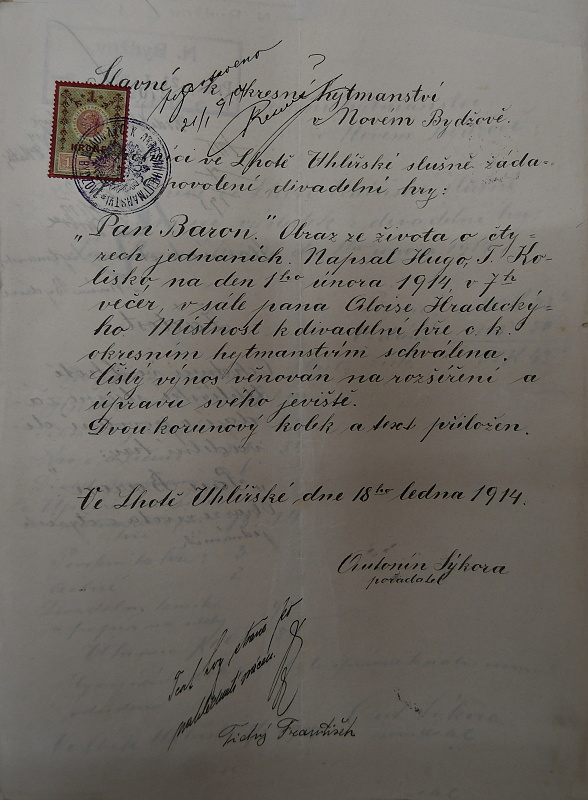 Slavné k. k. okresní hejtmanství
v Novém Bydžově.
21/1 914
ve Lhotě Uhlířské slušně žáda-
povolení divadelní hry:
„Pan Baron." Obraz ze života o čty-
rech jednáních. Napsal Hugo, T. Ko-
lisko, na den 1ho února 1914, v 7h
večer, v sále pana Aloise Hradecký-
ho Místnost k divadelní hře c. k.
okresním hejtmanstvím schválena.
Čistý výnos věnován na rozšíření a
úpravu svého jeviště.
Dvoukorunový kolek a text přiložen.
Ve Lhotě Uhlířské dne 18ho ledna 1914.
Antonín Sýkora
pořadatel
Text hry
Tichý František